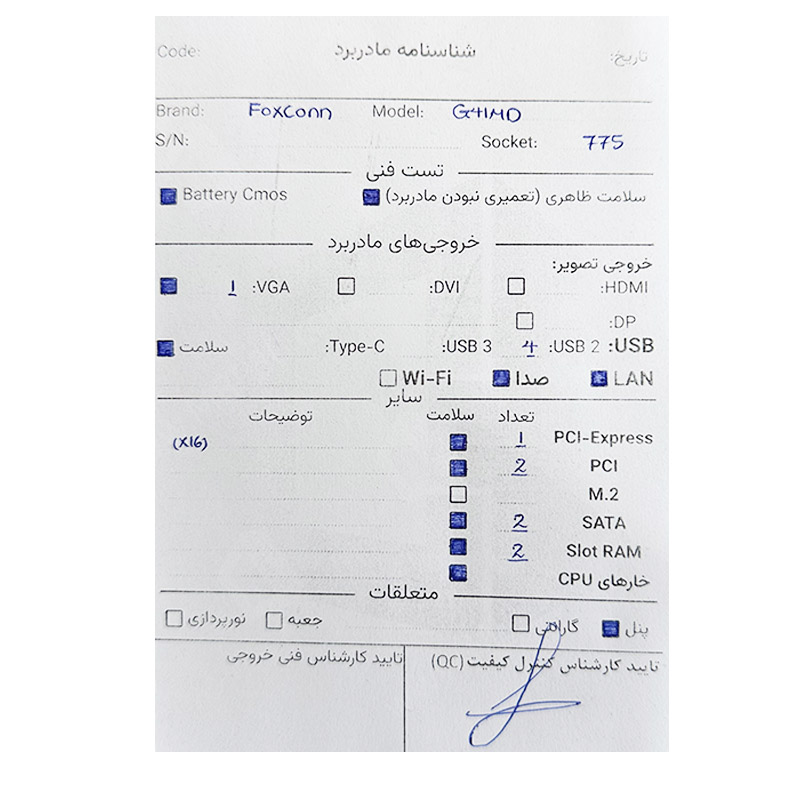 Code: شناسنامه مادربرد تاریخ:
Brand: FoxConn Model: G41MD
S/N: Socket: 775
تست فنی
سلامت ظاهری (تعمیری نبودن مادربرد) Battery Cmos
خروجی‌های مادربرد
خروجی تصویر:
HDMI: DVI: VGA: 1
DP:
USB: USB 2: 4 USB 3: Type-C: سلامت
LAN صدا Wi-Fi
سایر
تعداد سلامت توضیحات
PCI-Express 1 (X16)
PCI 2
M.2
SATA 2
Slot RAM 2
خارهای CPU
متعلقات
پنل گارانتی جعبه نورپردازی
تایید کارشناس کنترل کیفیت (QC) تایید کارشناس فنی خروجی